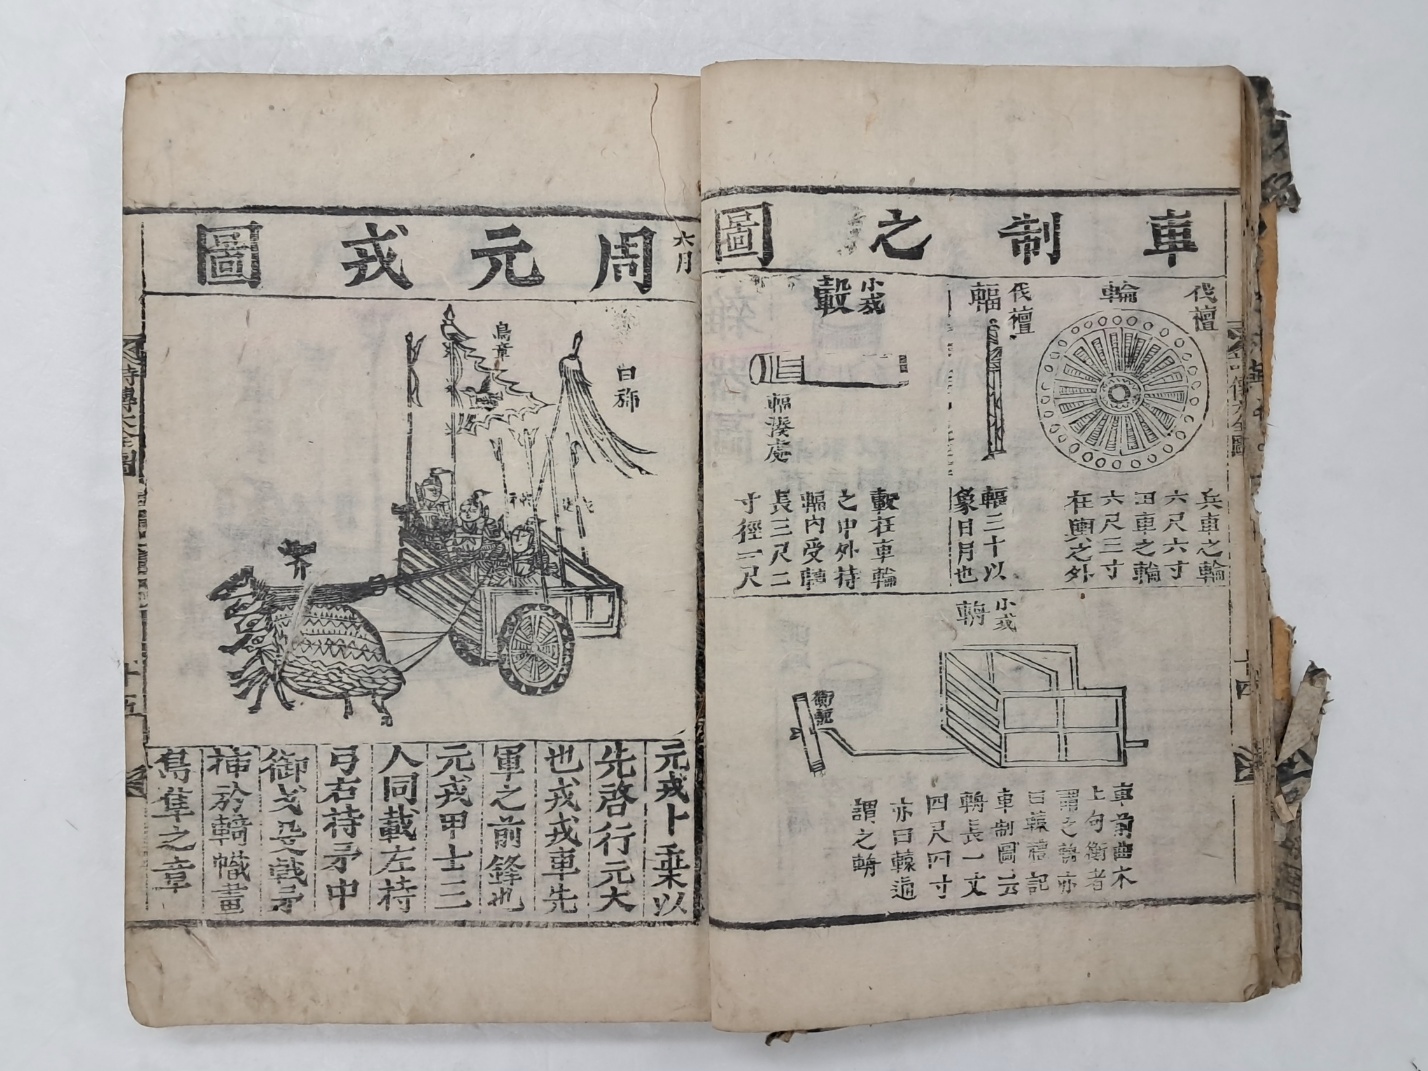 車制之圖
伐檀
輪
兵車之輪
六尺六寸
田車之輪
六尺三寸
在輿之外
伐檀
輻
輻三十以
象日月也
小戎
轂
輻湊處
轂在車輪
之中外持
輻內受軸
長三尺二
寸徑一尺
小戎
輈
衡軛
車前曲木
上句衡者
謂之輈亦
曰轅禮記
車制圖云
輈長一丈
四尺四寸
亦曰轅通
謂之輈
六月
周元戎圖
鳥章
白旆
元戎十乗以
先啓行元大
也戎戎車先
軍之前鋒也
元戎甲士三
人同載左持
弓右持矛中
御戈殳戟矛
挿於輢幟畫
鳥隼之章
詩傳大全圖
十五